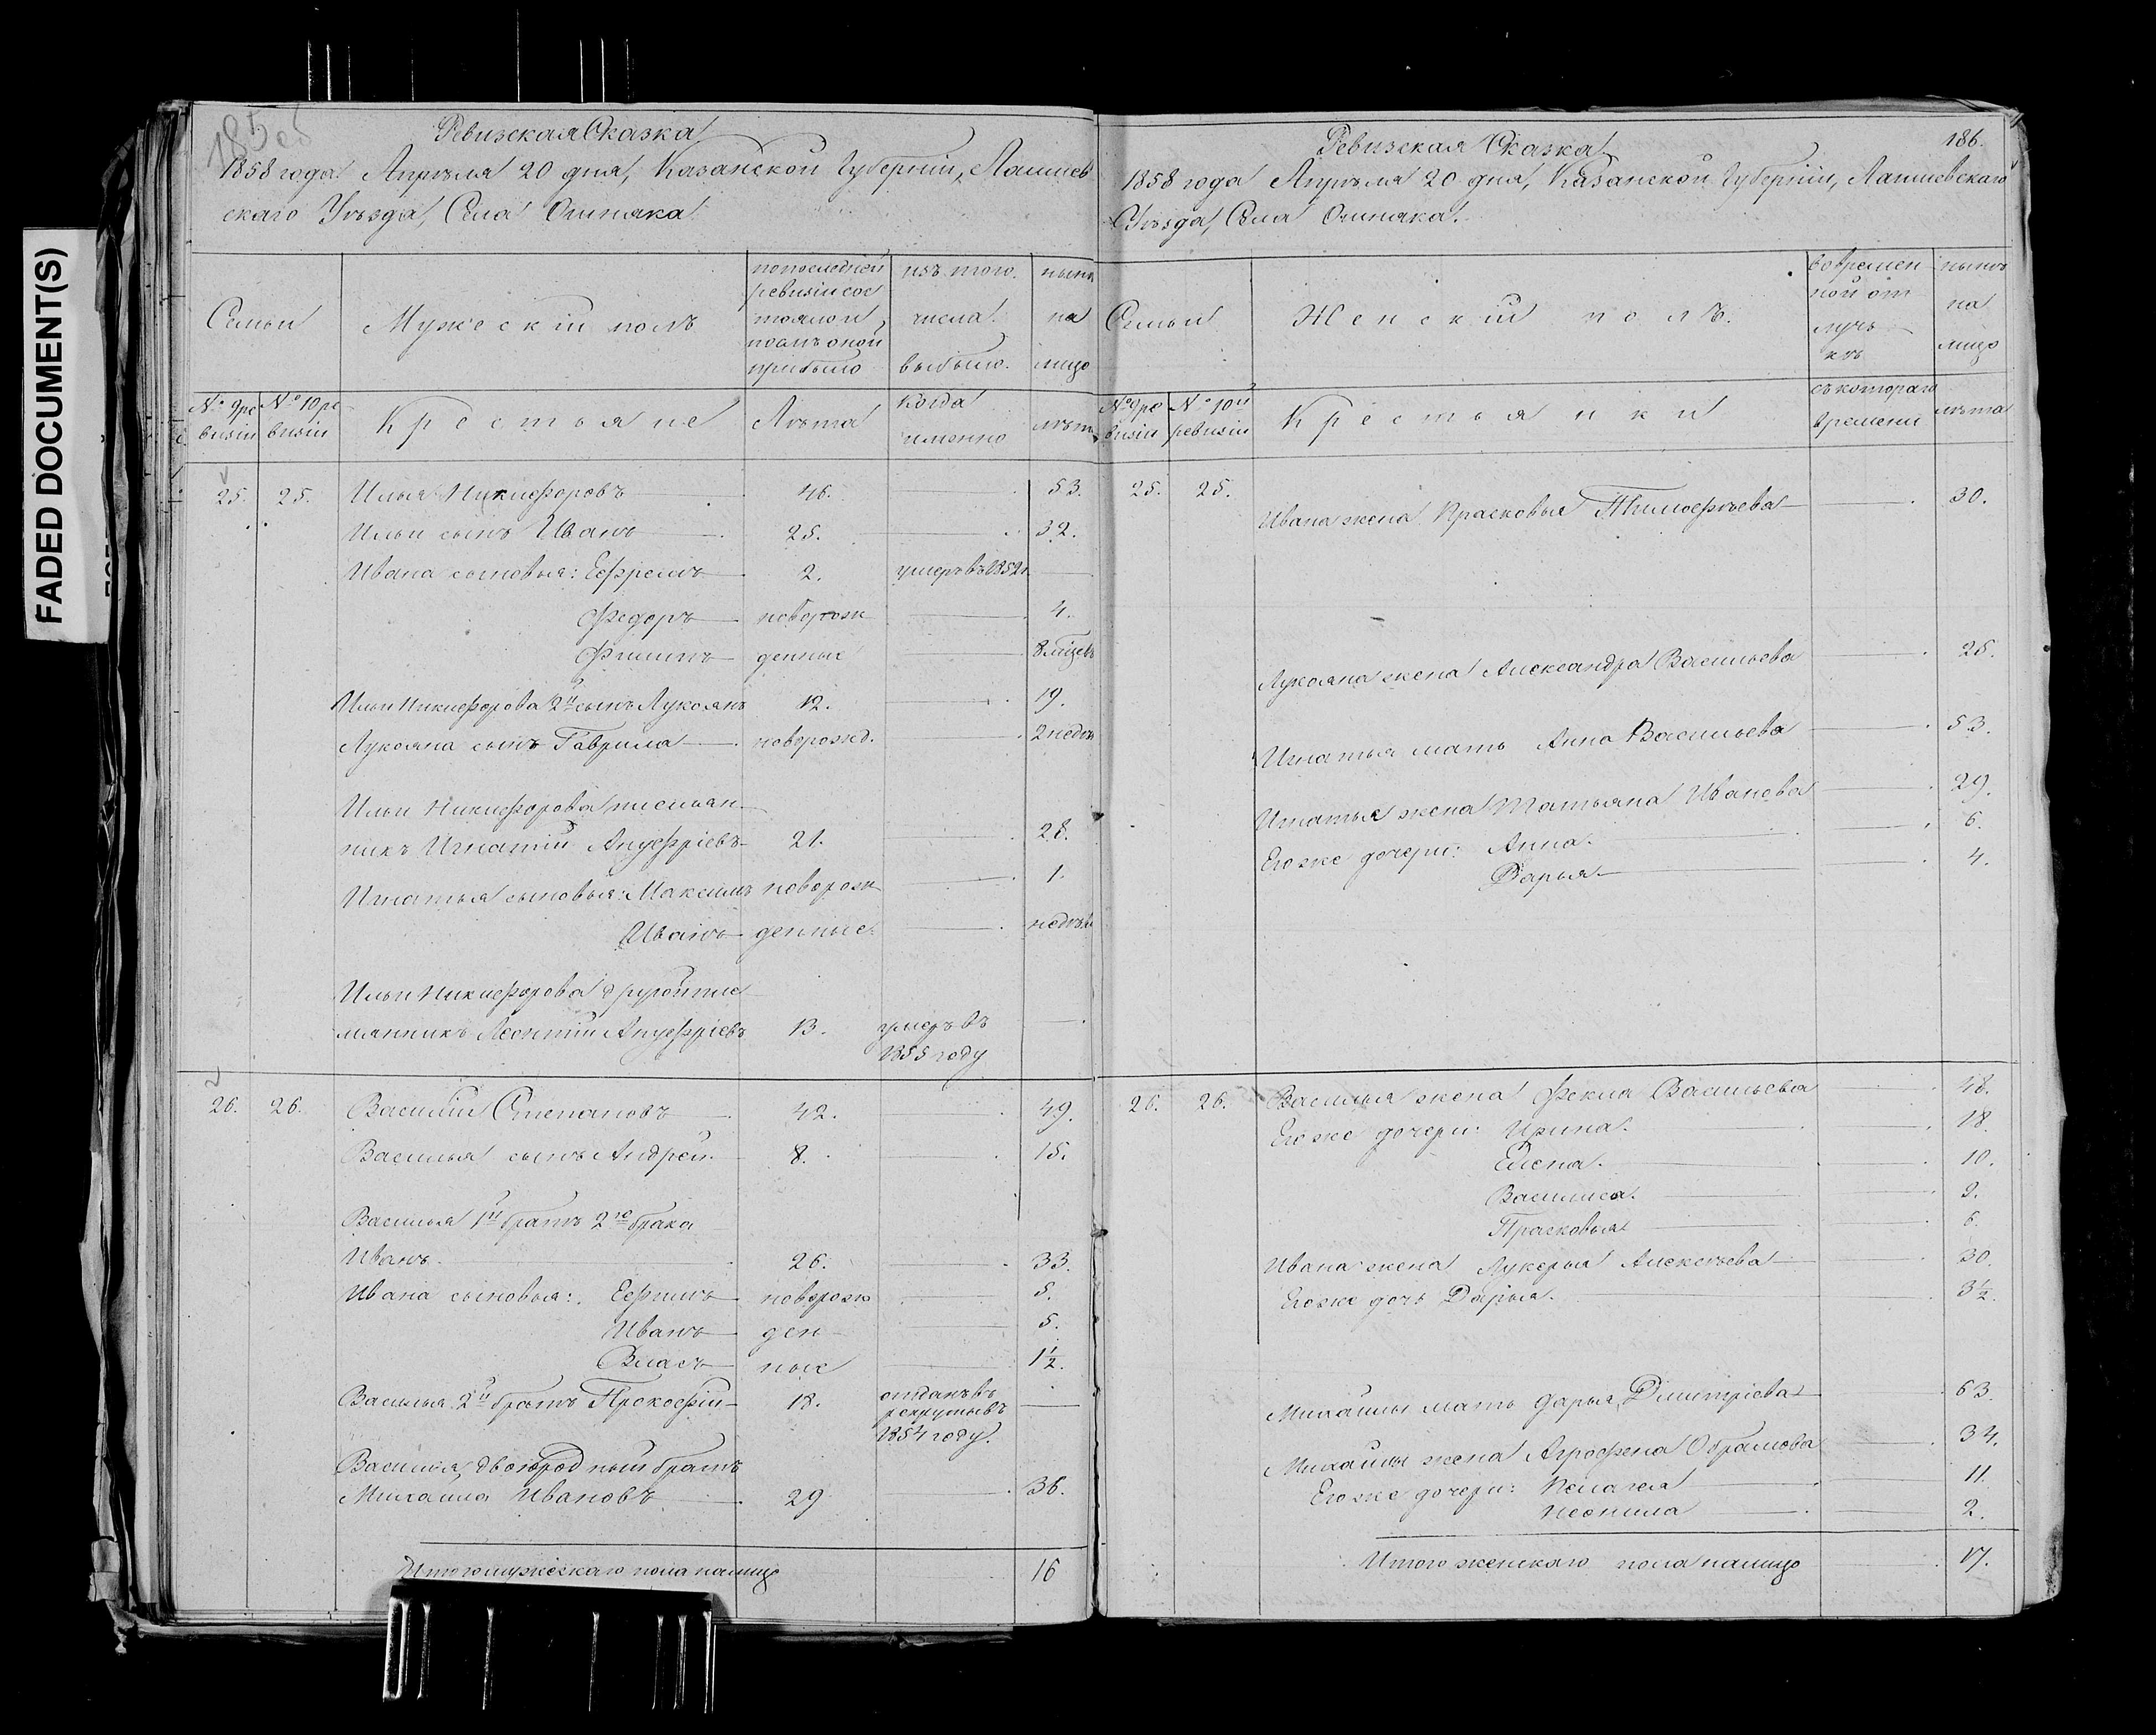 FADED DOCUMENT(S)
185об
Ревизская Сказка
1858 года Апрѣля 20 дня, Казанской Губерніи, Лаишев
скаго Уѣзда, Села
Семьи
Мужескій полъ
по последней
ревизіи сос
тояло и
послѣ оной
прибыло
изъ того
числа
выбыло
нынѣ
на
лицо
№ 9 ре
визіи
№ 10 ре
визіи
Крестьяне
Лѣта
когда
именно
лѣта
25. 25. Илья Никифоровъ 46. 53.
Ильи сынъ Иванъ 25. 32.
Ивана сыновья: Ефремъ 2. умеръ въ 1852 г.
Федоръ новорож 4.
Филипъ денные 8 мѣцевъ
Ильи Никифорова 2й сынъ Лукоянъ 12. 19.
Лукояна сынъ Гаврила новорожд. 2 недѣ
Ильи Никифорова племян
никъ Игнатій Ануфріевъ 21. 28.
Игнатья сыновья: Максимъ новорож 1.
Иванъ денные. недѣль
Ильи Никифорова другой пле
мянникъ Леонтій Ануфріевъ 13. умеръ въ
1855 году
26. 26. Василій Степановъ 42. 49.
Василья сынъ Андрей. 8. 15.
Василья 1й братъ 2го брака
Иванъ. 26. 33.
Ивана сыновья: Ефимъ новорож 8.
Иванъ ден 5.
Власъ ные 1½.
Василья 2й братъ Прокофій 18. отданъ въ
рекруты въ
1854 году.
Василья, двоюродный братъ
Михаила Ивановъ 29 36.
Итого мужескаго пола налицо 16
186.
Ревизская Сказка
1858 года Апрѣля 20 дня, Казанской Губерніи, Лаишевскаго
Уѣзда, Села
Семьи
Женскій полъ.
во времен
ной от
луч
кѣ
нынѣ
на
лицо
№ 9 ре
визіи
№ 10й
ревизіи
Крестьянки
съ котораго
времени
лѣта
25. 25. Ивана жена Прасковья Тимофѣева 30.
Лукояна жена Александра Васильева 25.
Игнатья мать Анна Васильева 53.
Игнатья жена Татьяна Иванова 29.
Его же дочери: Анна. 6.
Дарья 4.
26. 26. Василья жена Фекла Васильева 48.
Его же дочери: Ирина. 18.
Елена. 10.
Василиса. 9.
Прасковья 6.
Ивана жена Лукерья Алексѣева 30.
Его же дочь Дарья. 3½.
Михаилы мать Дарья Дмитріева 63.
Михаилы жена Агрофена Обрамова 34.
Его же дочери: Пелагея 11.
Неонила 2.
Итого женскаго пола налицо 17.